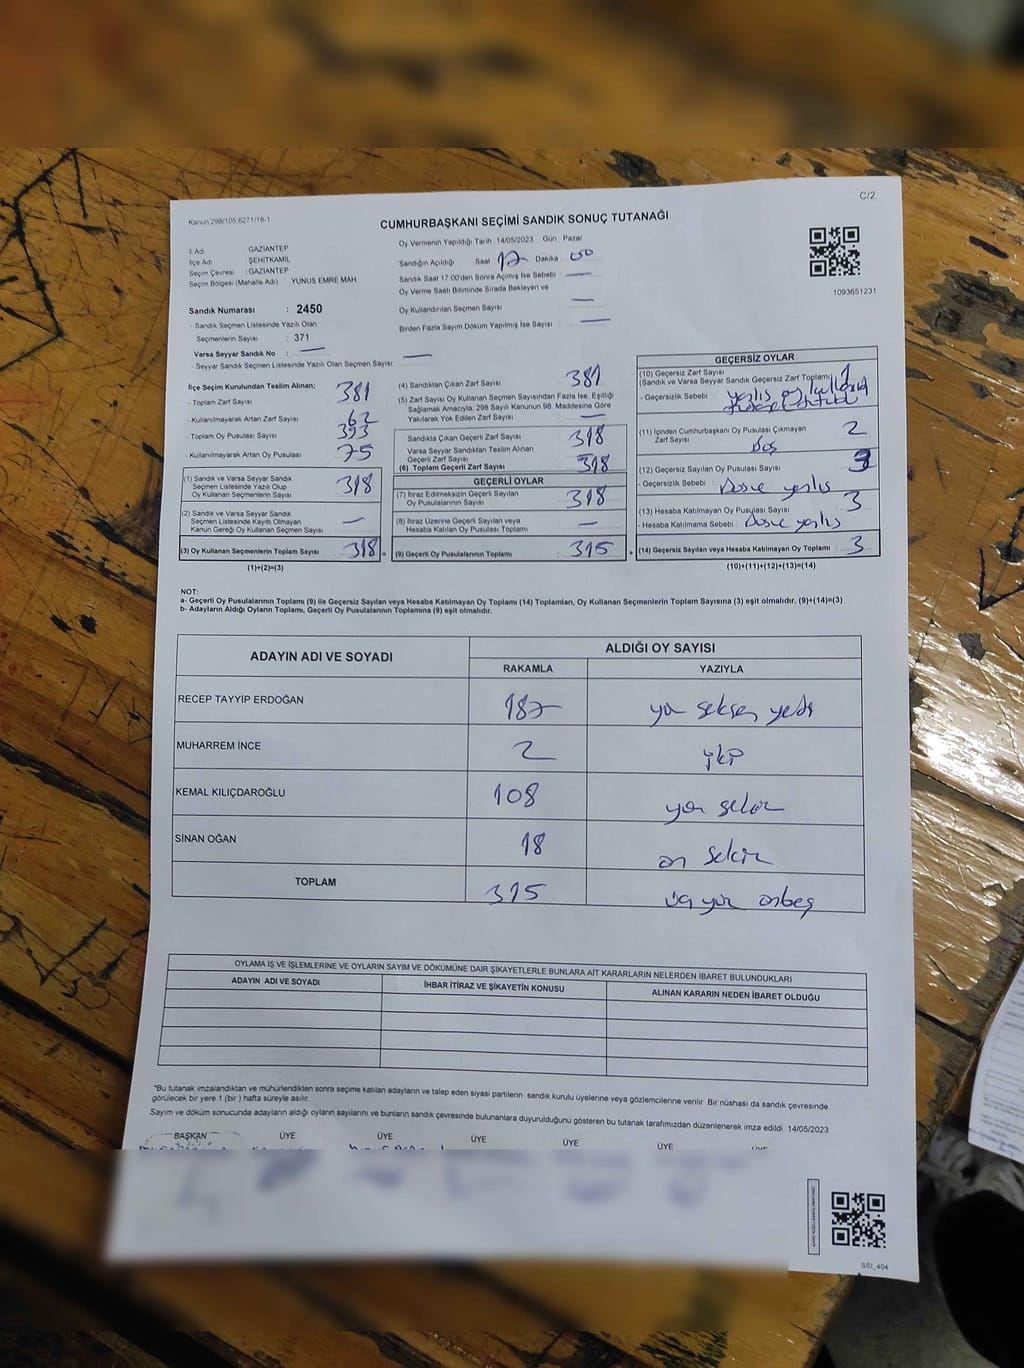 C/2
Kanun:298/105,6271/18-1
CUMHURBAŞKANI SEÇİMİ SANDIK SONUÇ TUTANAĞI
İl Adı : GAZİANTEP
İlçe Adı : ŞEHİTKAMİL
Seçim Çevresi : GAZİANTEP
Seçim Bölgesi (Mahalle Adı) : YUNUS EMRE MAH.
Oy Vermenin Yapıldığı Tarih : 14/05/2023 Gün : Pazar
Sandığın Açıldığı Saat 17 Dakika : 00
Sandık Saat 17:00'den Sonra Açılmış İse Sebebi : —
Oy Verme Saati Bitiminde Sırada Bekleyen ve
Oy Kullandırılan Seçmen Sayısı —
Birden Fazla Sayım Döküm Yapılmış İse Sayısı : —
1093651231
Sandık Numarası : 2450
- Sandık Seçmen Listesinde Yazılı Olan
Seçmenlerin Sayısı : 371
Varsa Seyyar Sandık No : —
- Seyyar Sandık Seçmen Listesinde Yazılı Olan Seçmen Sayısı : —
İlçe Seçim Kurulundan Teslim Alınan;
- Toplam Zarf Sayısı 381
- Kullanılmayarak Artan Zarf Sayısı 62
- Toplam Oy Pusulası Sayısı 393
- Kullanılmayarak Artan Oy Pusulası 75
(1) Sandık ve Varsa Seyyar Sandık
Seçmen Listesinde Yazılı Olup
Oy Kullanan Seçmenlerin Sayısı 318
(2) Sandık ve Varsa Seyyar Sandık
Seçmen Listesinde Kayıtlı Olmayan
Kanun Gereği Oy Kullanan Seçmen Sayısı —
(3) Oy Kullanan Seçmenlerin Toplam Sayısı 318 =
(1)+(2)=(3)
(4) Sandıktan Çıkan Zarf Sayısı 381
(5) Zarf Sayısı Oy Kullanan Seçmen Sayısından Fazla İse, Eşitliği
Sağlamak Amacıyla, 298 Sayılı Kanunun 98. Maddesine Göre
Yakılarak Yok Edilen Zarf Sayısı —
Sandıkta Çıkan Geçerli Zarf Sayısı 318
Varsa Seyyar Sandıktan Teslim Alınan
Geçerli Zarf Sayısı
(6) Toplam Geçerli Zarf Sayısı 318
GEÇERLİ OYLAR
(7) İtiraz Edilmeksizin Geçerli Sayılan
Oy Pusulalarının Sayısı 318
(8) İtiraz Üzerine Geçerli Sayılan veya
Hesaba Katılan Oy Pusulası Toplamı —
(9) Geçerli Oy Pusulalarının Toplamı 315 +
GEÇERSİZ OYLAR
(10) Geçersiz Zarf Sayısı
(Sandık ve Varsa Seyyar Sandık Geçersiz Zarf Toplamı) 1
- Geçersizlik Sebebi :
(11) İçinden Cumhurbaşkanı Oy Pusulası Çıkmayan
Zarf Sayısı 2
boş
(12) Geçersiz Sayılan Oy Pusulası Sayısı 3
- Geçersizlik Sebebi :
(13) Hesaba Katılmayan Oy Pusulası Sayısı 3
- Hesaba Katılmama Sebebi :
(14) Geçersiz Sayılan veya Hesaba Katılmayan Oy Toplamı 3
(10)+(11)+(12)+(13)=(14)
NOT:
a- Geçerli Oy Pusulalarının Toplamı (9) ile Geçersiz Sayılan veya Hesaba Katılmayan Oy Toplamı (14) Toplamları, Oy Kullanan Seçmenlerin Toplam Sayısına (3) eşit olmalıdır. (9)+(14)=(3)
b- Adayların Aldığı Oyların Toplamı, Geçerli Oy Pusulalarının Toplamına (9) eşit olmalıdır.
ADAYIN ADI VE SOYADI ALDIĞI OY SAYISI
RAKAMLA YAZIYLA
RECEP TAYYİP ERDOĞAN 187 yüz seksen yedi
MUHARREM İNCE 2 iki
KEMAL KILIÇDAROĞLU 108 yüz sekiz
SİNAN OĞAN 18 on sekiz
TOPLAM 315 üç yüz onbeş
OYLAMA İŞ VE İŞLEMLERİNE VE OYLARIN SAYIM VE DÖKÜMÜNE DAİR ŞİKAYETLERLE BUNLARA AİT KARARLARIN NELERDEN İBARET BULUNDUKLARI
ADAYIN ADI VE SOYADI İHBAR İTİRAZ VE ŞİKAYETİN KONUSU ALINAN KARARIN NEDEN İBARET OLDUĞU
*Bu tutanak imzalandıktan ve mühürlendikten sonra seçime katılan adayların ve talep eden siyasi partilerin sandık kurulu üyelerine veya gözlemcilerine verilir. Bir nüshası da sandık çevresinde
görülecek bir yere 1 (bir) hafta süreyle asılır.
Sayım ve döküm sonucunda adayların aldığı oyların sayılarını ve bunların sandık çevresinde bulunanlara duyurulduğunu gösteren bu tutanak tarafımızdan düzenlenerek imza edildi. 14/05/2023
BAŞKAN ÜYE ÜYE ÜYE ÜYE ÜYE ÜYE
SSI_404